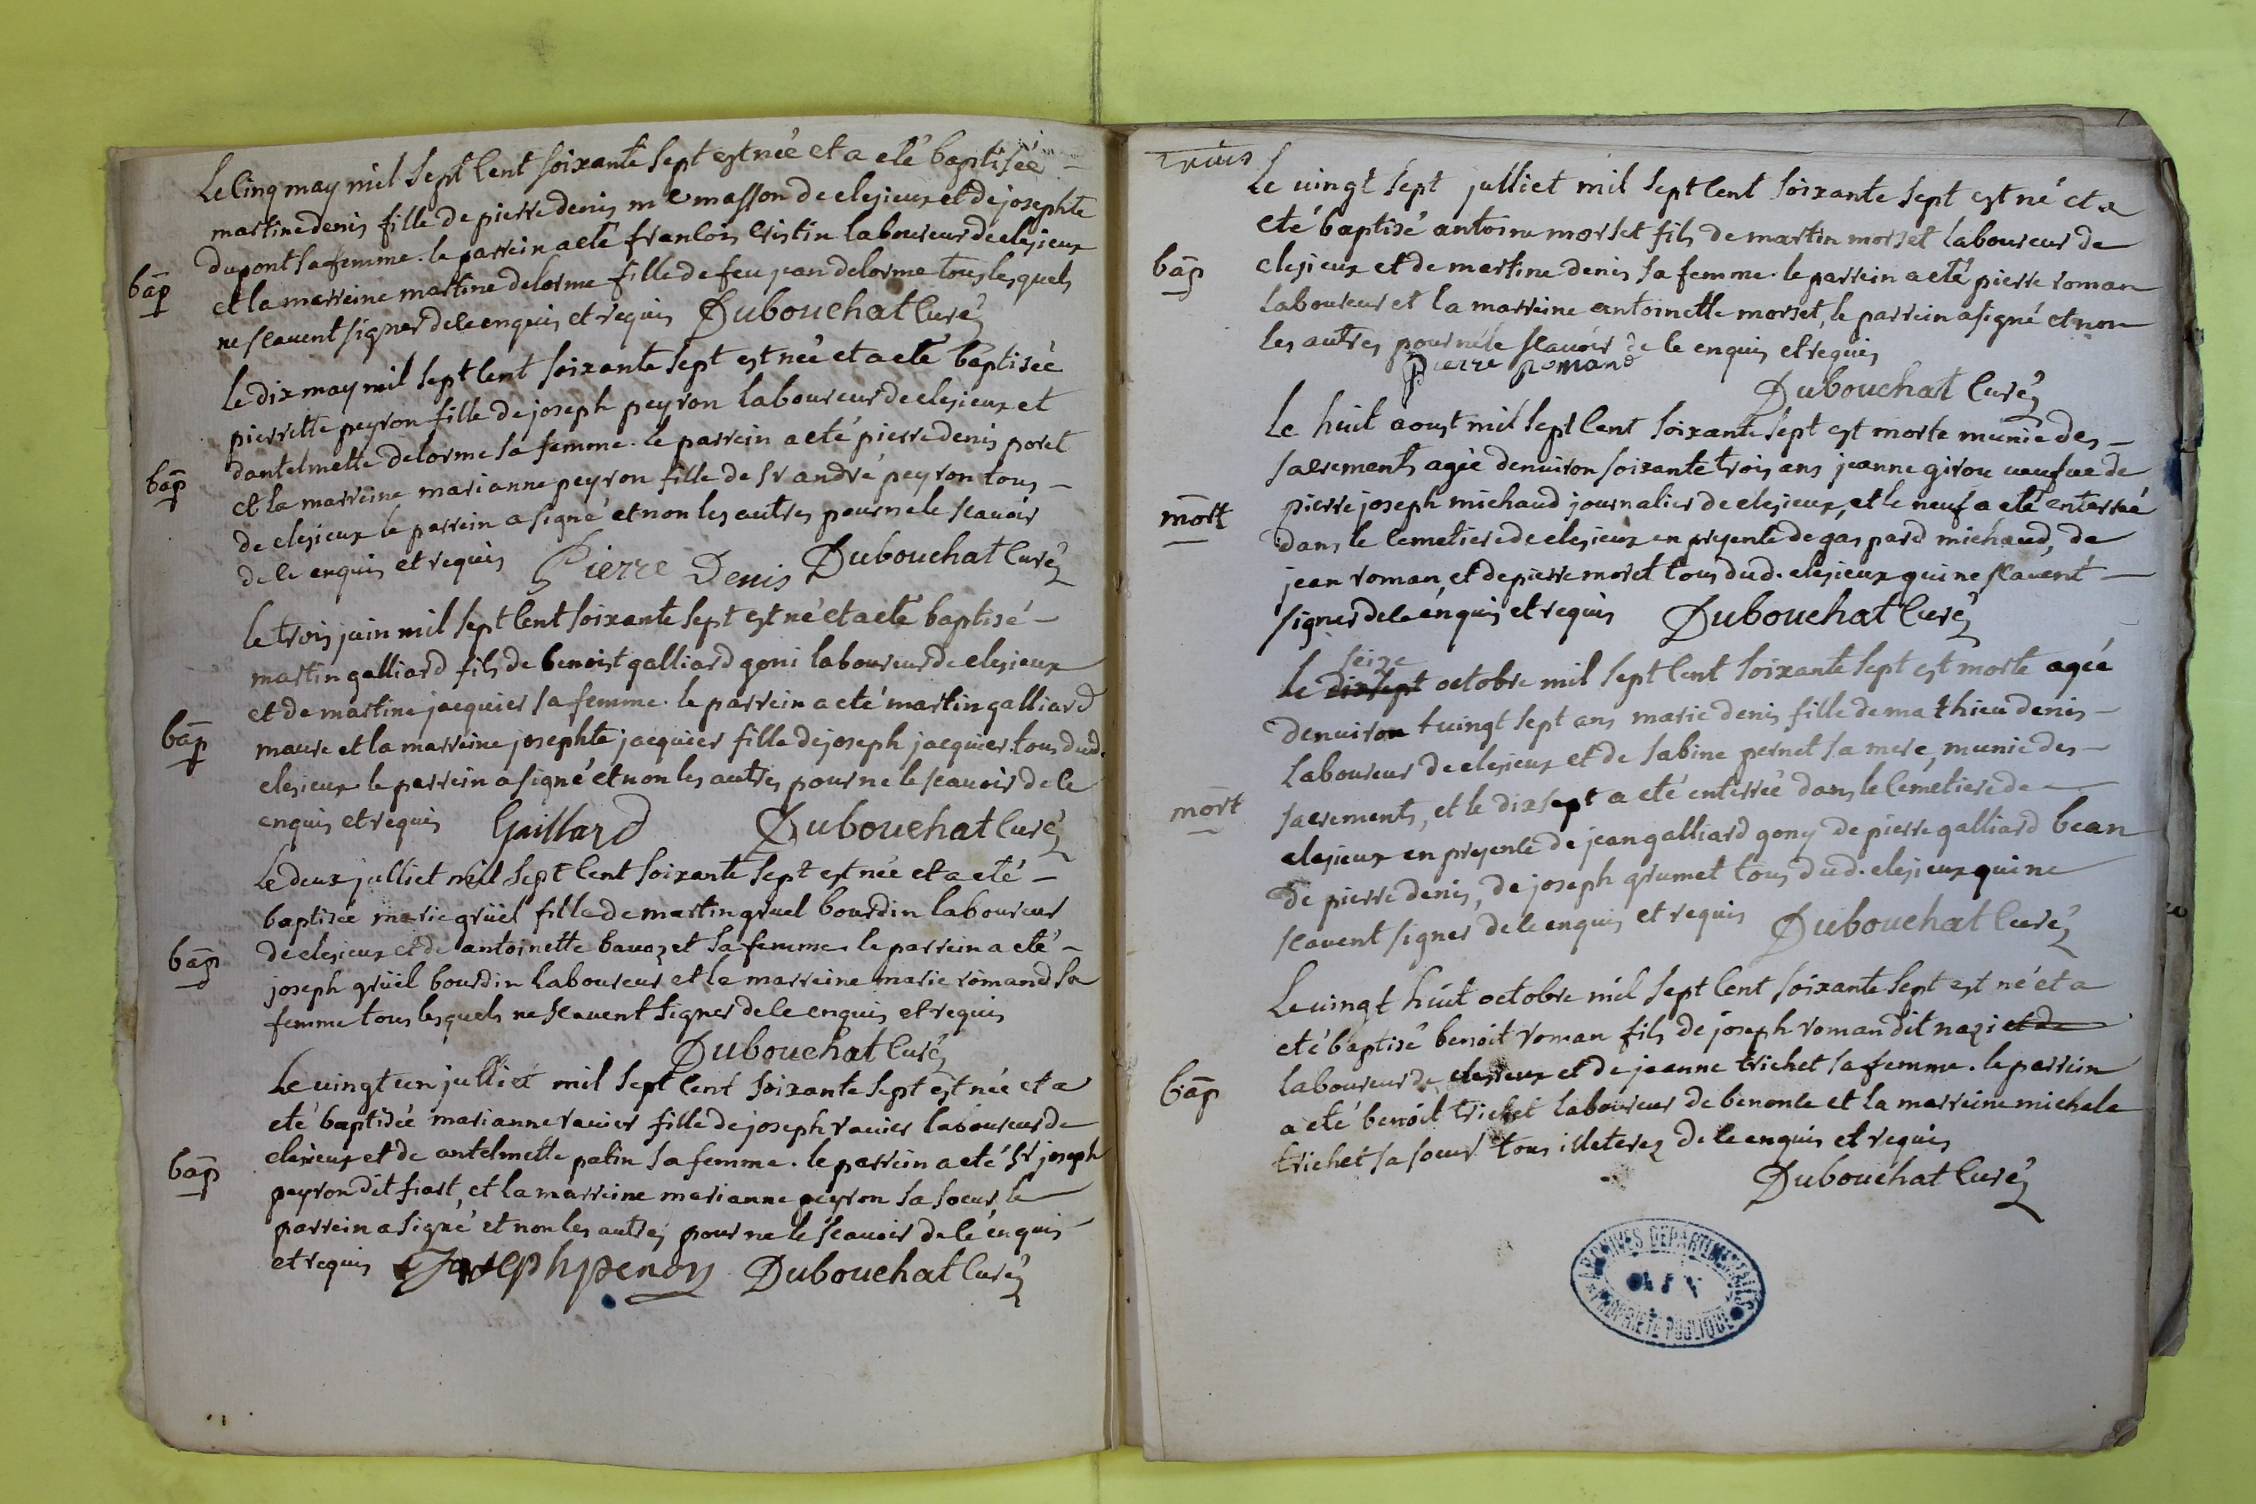 Le cinq may mil sept cent soixante sept est née et a eté baptisée
martine denis fille de pierre denis me masson de cleyzieux et de josephte
dupont sa femme. le parrein a eté francois cristin laboureur de cleyzieux
bap
et la marreine martine delorme fille de feu jean delorme tous lesquels
ne scavent signer de ce enquis et requis Dubouchat curé
Le dix may mil sept cent soixante sept est née et a eté baptisée
pierrette peyron fille de joseph peyron laboureur de cleyzieux et
dantelmette delorme sa femme. le parrein a eté pierre denis poret
bap
et la marreine marianne peyron fille de sr andré peyron tous
de cleyzieux le parrein a signé et non les autres pour ne le scavoir
de ce enquis et requis Pierre Denis Dubouchat curé
le trois juin mil sept cent soixante sept est né et a eté baptisé
martin galliard fils de benoist galliard goni laboureur de cleyzieux
et de martine jacquier sa femme. le parrein a eté martin galliard
bap
maure et la marreine josephte jacquier fille de joseph jacquier tous dud.
cleyzieux le parrein a signé et non les autres pour ne le scavoir de ce
enquis et requis Gaillard Dubouchat curé
Le deux julliet mil sept cent soixante sept est née et a eté
baptisée marie grüel fille de martin gruel bourdin laboureur
bap
de cleyzieux et de antoinette bavozet sa femme. le parrein a eté
joseph grüel bourdin laboureur et la marreine marie romand sa
femme tous lesquels ne scavent signer de ce enquis et requis
Dubouchat curé
Le vingt un julliet mil sept cent soixante sept est née et a
eté baptisée marianne ravier fille de joseph ravier laboureur de
cleyzieux et de antelmette patin sa femme. le parrein a eté sr joseph
bap
peyron dit fiart, et la marreine marianne peyron sa soeur, le
parrein a signé et non les autres pour ne le scavoir de ce enquis
et requis Joseph peron Dubouchat curé
trois
Le vingt sept julliet mil sept cent soixante sept est né et a
eté baptisé antoine morset fils de martin morset laboureur de
bap
cleyzieux et de martine denis sa femme. le parrein a eté pierre roman
laboureur et la marreine antoinette morset, le parrein a signé et non
les autres pour ne le scavoir de ce enquis et requis
Pierre Romand
Dubouchat curé
Le huit aoust mil sept cent soixante sept est morte munie des
sacrements agée denviron soixante trois ans jeanne girou veufve de
mort
pierre joseph michaud journalier de cleyzieux, et le neuf a eté enterrée
dans le cemetiere de cleyzieux en presence de gaspard michaud, de
jean roman, et de pierre moret tous dud. cleyzieux qui ne scavent
signer de ce enquis et requis Dubouchat curé
seize
Le dixsept octobre mil sept cent soixante sept est morte agée
denviron vingt sept ans marie denis fille de mathieu denis
laboureur de cleyzieux et de sabine pernet sa mere, munie des
mort
sacrements, et le dixsept a eté enterrée dans le cemetiere de
cleyzieux en presence de jean galliard gony de pierre galliard bean
de pierre denis, de joseph grumet tous dud. cleyzieux qui ne
scavent signer de ce enquis et requis Dubouchat curé
Le vingt huit octobre mil sept cent soixante sept est né et a
eté baptisé benoit roman fils de joseph roman dit nazi et de
laboureur de cleyzieux et de jeanne trichet sa femme. le parrein
bap
a eté benoit trichet laboureur de benonce et la marreine michele
trichet sa soeur tous illeterez de ce enquis et requis
Dubouchat curé
ARCHIVES DEPARTEMENTALES
AIN
PROPRIETE PUBLIQUE